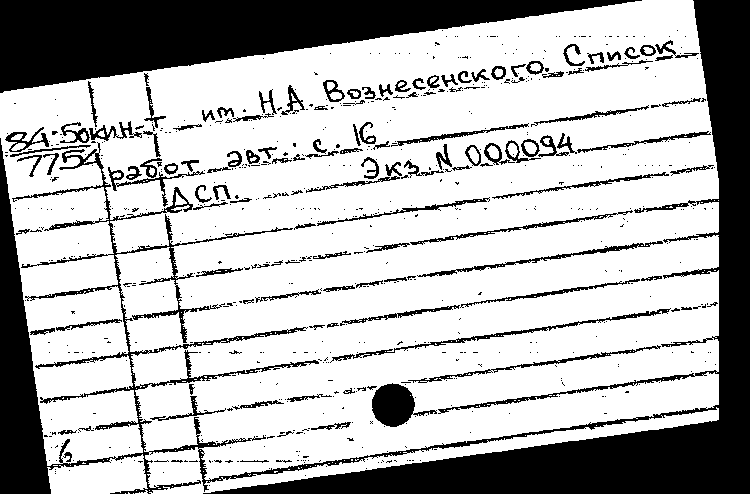 84-5окин-т им. Н.А. Вознесенского. Список
7754 работ авт.: с. 16
ДСП. Экз N 000094
6